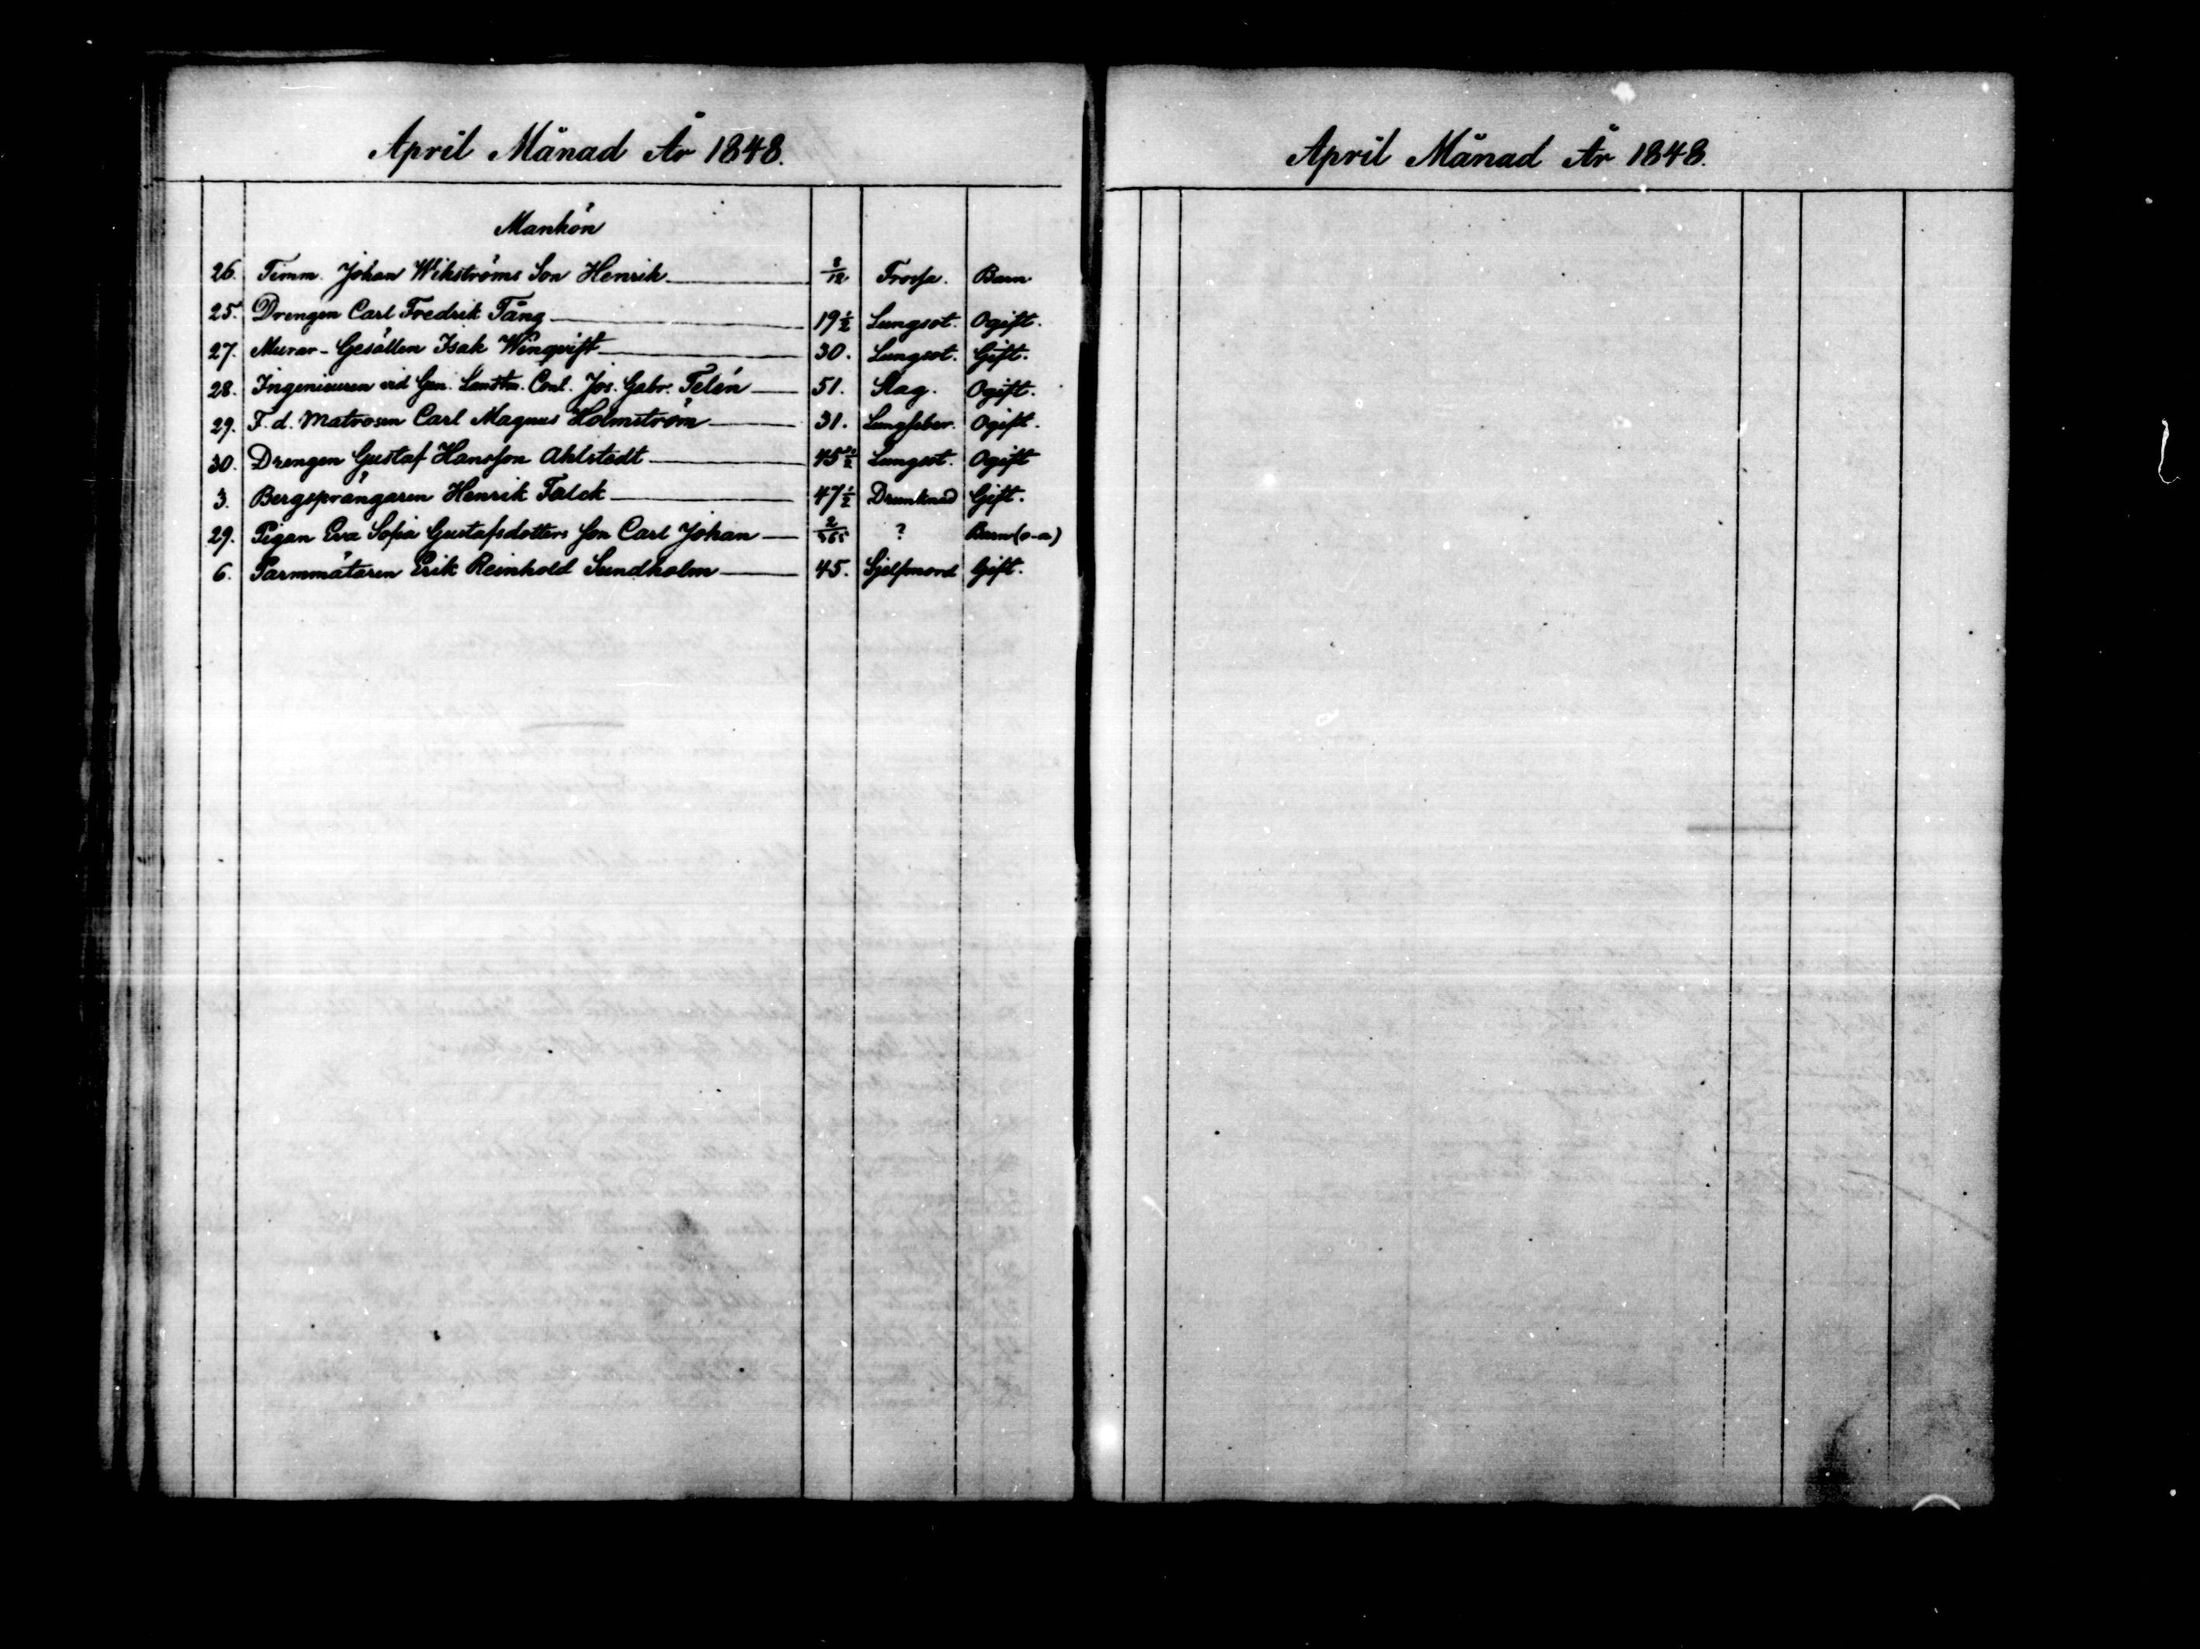 April Månad År 1848.
Mankön
26. Timm. Johan Wikströms Son Henrik 8/12 Frossa. Barn
25. Drengen Carl Fredrik Tång 19 1/2 Lungsot. Ogift.
27. Murar-Gesällen Isak Winqvist 30. Lungsot. Gift.
28. Ingenieuren vid Gen. Landtm. Cont. Jos. Gabr. Telén 51. Slag. Ogift.
29. F. d. Matrosen Carl Magnus Holmström 31. Lungfeber. Ogift.
30. Drengen Gustaf Hansson Ahlstedt 45 Lungsot. Ogift
3. Bergsprängaren Henrik Falck 47 1/2 Drunknad Gift.
29. Pigan Eva Sofia Gustafsdotters Son Carl Johan 2/365 ? Barn (o-a)
6. Parmmätaren Erik Reinhold Sundholm 45. Sjelfmord Gift.
April Månad År 1848.